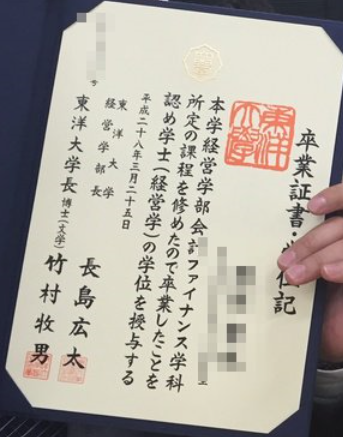 卒業証書・学位記
東洋大学
本学経営学部会計ファイナンス学科
所定の課程を修めたので卒業したことを
認め学士(経営学)の学位を授与する
平成二十八年三月二十五日
東洋大学
経営学部長 長島広太
東洋大学長 博士(文学) 竹村牧男
号